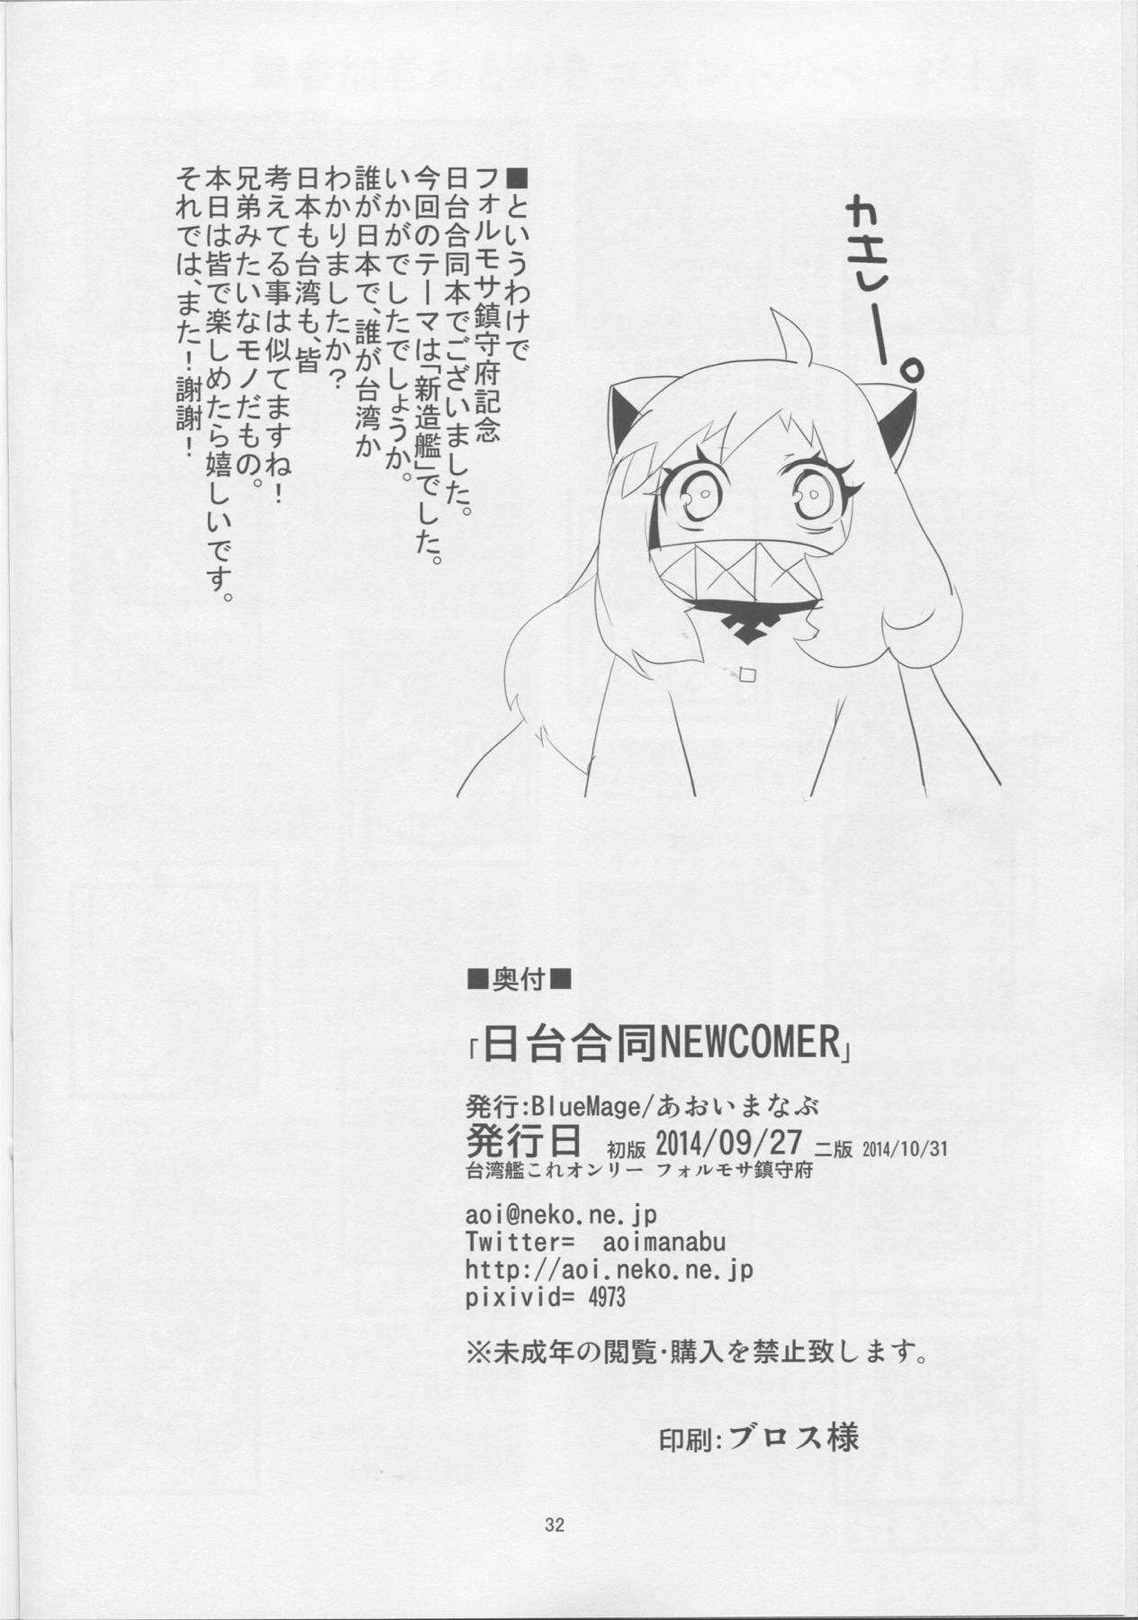 カエレー。
■というわけで
フォルモサ鎮守府記念
日台合同本でございました。
今回のテーマは「新造艦」でした。
いかがでしたでしょうか。
誰が日本で、誰が台湾か
わかりましたか？
日本も台湾も、皆
考えてる事は似てますね！
兄弟みたいなモノだもの。
本日は皆で楽しめたら嬉しいです。
それでは、また！謝謝！
■奥付■
「日台合同NEWCOMER」
発行:BlueMage/あおいまなぶ
発行日 初版 2014/09/27 二版 2014/10/31
台湾艦これオンリー フォルモサ鎮守府
aoi@neko.ne.jp
Twitter= aoimanabu
http://aoi.neko.ne.jp
pixivid= 4973
※未成年の閲覧・購入を禁止致します。
印刷:ブロス様
32